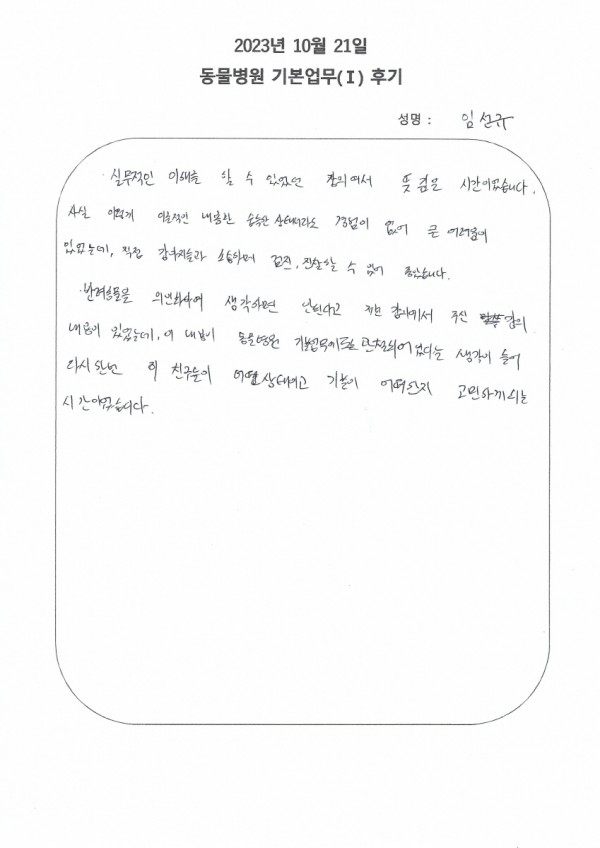 2023년 10월 21일
동물병원 기본업무(Ⅰ) 후기
성명 : 임선규
실무적인 이해를 할 수 있었던 강의여서 뜻 깊은 시간이었습니다.
사실 이론적인 내용만 습득한 상태에서라도 경험이 없어 큰 어려움이
있었는데, 직접 강아지들과 소통하며 교감, 진찰할 수 있어 좋았습니다.
반려동물을 의인화하여 생각하면 안된다고 저번 강의에서 주신 강의
내용이 있었는데, 이 내용이 동물병원 생각이 들어
다시한번 이 친구들이 어떤 상태이고 기분이 어떠한지 고민하게 되는
시간이었습니다.